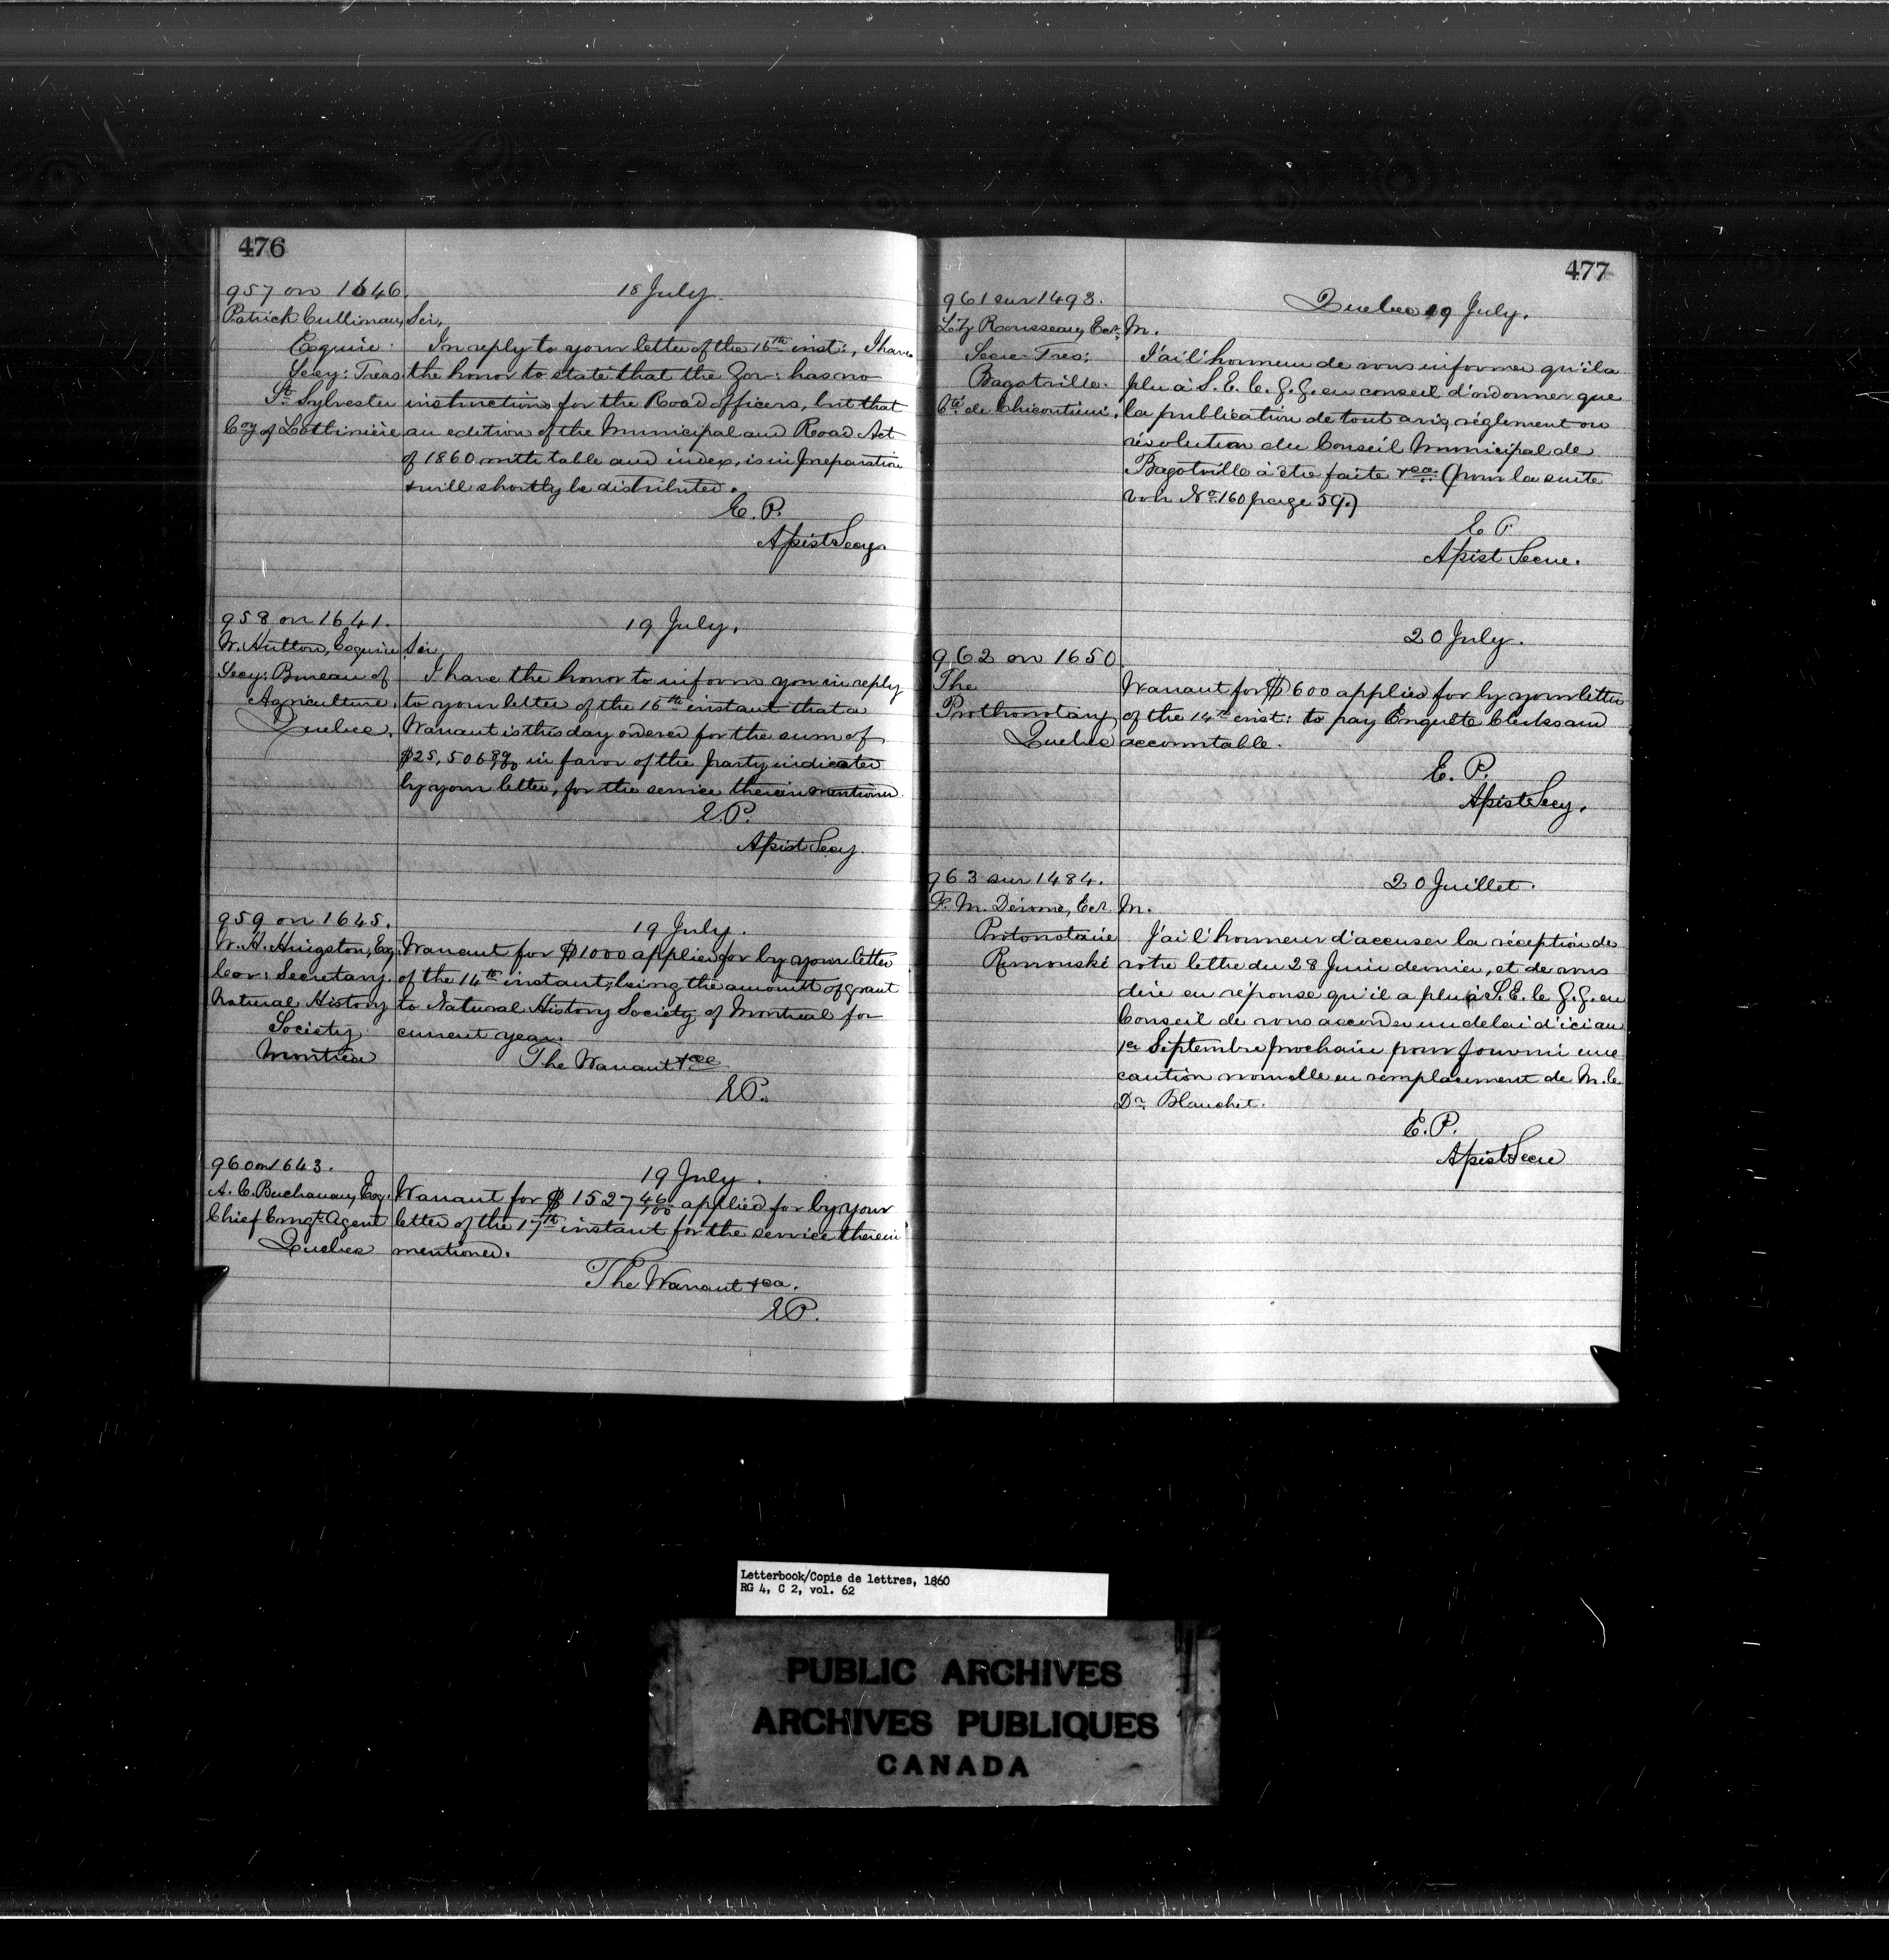 476
957 on 1646.
18 July.
Patrick Cullinan,
Esquire
Secy: Treas.
St. Sylvester
Coy of Lotbinière
Sir,
In reply to your letter of the 16th inst:, I have
the honor to state that the Gov: has no
instructions for the Road officers, but that
an edition of the Municipal and Road Act
of 1860 with table and index, is in preparation
& will shortly be distributed.
E. P.
Asist Secy.
958 on 1641.
19 July.
W. Hutton, Esquire
Secy: Bureau of
Agriculture,
Quebec.
Sir,
I have the honor to inform you in reply
to your letter of the 16th instant that a
Warrant is this day ordered for the sum of
$25,506 in favor of the party indicated
by your letter, for the service therein mentioned.
E.P.
Asist Secy.
959 on 1645.
19 July.
W. H. Hingston, Esq.
Cor: Secretary
Natural History
Society
Montreal
Warrant for $1000 applied for by your letter
of the 14th instant; being the amount of grant
to Natural History Society of Montreal for
current year.
The Warrant &ce
EP.
960 on 1643.
19 July.
A. C. Buchanan, Esq.
Chief Emigt. Agent
Quebec
Warrant for $ 1527 46/100 applied for by your
letter of the 17th instant for the service therein
mentioned.
The Warrant &ca.
EP.
477
961 sur 1493.
Quebec 19 July.
Rousseau, Ecr.
Secre-Tres:
Bagotville.
Cté de Chicoutimi.
M.
J'ai l'honneur de vous informer qu'il a
plu à S. E. le G. G. en conseil d'ordonner que
la publication de tout avis, réglement ou
résolution du Conseil Municipal de
Bagotville à être faite &ca (pour la suite
voir No. 160 page 59.)
E P
Asist Secre.
20 July.
962 on 1650.
The
Prothonotary
Quebec
Warrant for $600 applied for by your letter
of the 14th inst: to pay Enquête Clerks and
accountable.
E. P.
Asist Secy.
963 sur 1484.
20 Juillet.
F. M. Derome, Ecr.
Protonotaire
Rimouski
M.
J'ai l'honneur d'accuser la réception de
votre lettre du 28 Juin dernier, et de vous
dire en réponse qu'il a plu à S. E. le G. G. en
Conseil de vous accorder un delai d'ici au
1er Septembre prochain pour fournir une
caution nouvelle en remplacement de M. le
Dr. Blanchet.
E. P.
Asist Secre
Letterbook/Copie de lettres, 1860
RG 4, C 2, vol. 62
PUBLIC ARCHIVES
ARCHIVES PUBLIQUES
CANADA